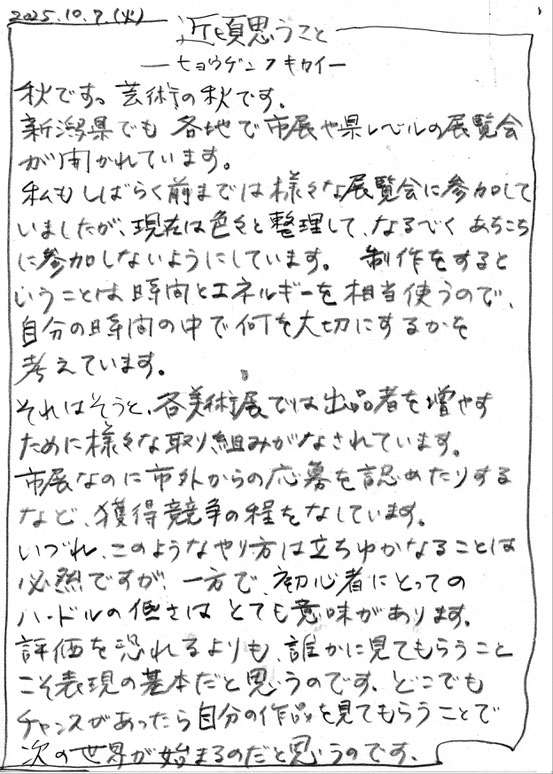 2025.10.7(火)
近頃思うこと
―ヒョウゲンノキカイ―
秋です。芸術の秋です。
新潟県でも各地で市展や県レベルの展覧会
が開かれています。
私もしばらく前までは様々な展覧会に参加して
いましたが、現在は色々と整理して、なるべくあちこち
に参加しないようにしています。 制作をすると
いうことは時間とエネルギーを相当使うので、
自分の時間の中で何を大切にするかを
考えています。
それはそうと、各美術展では出品者を増やす
ために様々な取り組みがなされています。
市展なのに市外からの応募を認めたりする
など、獲得競争の程をなしています。
いづれ、このようなやり方は立ちゆかなることは
必然ですが、一方で、初心者にとっての
ハードルの低さはとても意味があります。
評価を恐れるよりも、誰かに見てもらうこと
こそ表現の基本だと思うのです。どこでも
チャンスがあったら自分の作品を見てもらうことで
次の世界が始まるのだと思うのです。